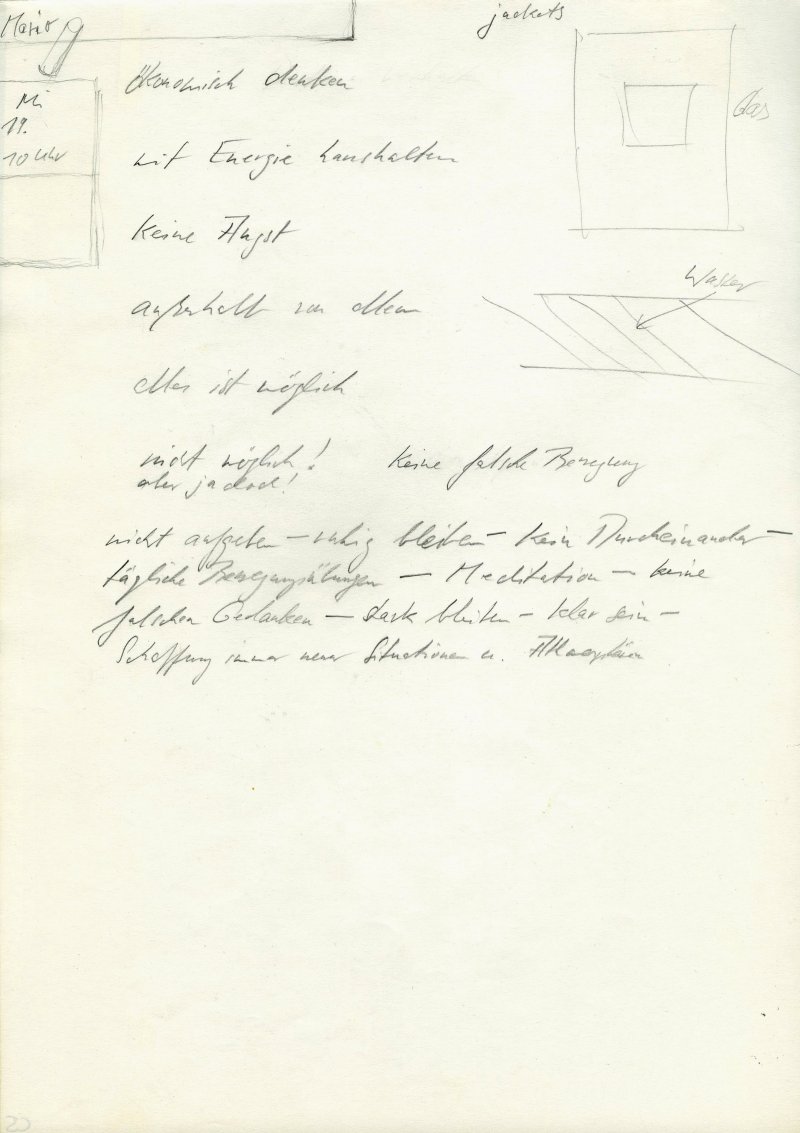 Mario
jackets
Mi
19.
10 Uhr
Glas
ökonomisch denken
mit Energie haushalten
keine Angst
Wasser
außerhalb von allem
alles ist möglich
nicht möglich! keine falsche Bewegung
aber jadoch!
nicht aufgeben – ruhig bleiben – kein Durcheinander –
tägliche Bewegungsübungen – Meditation – keine
falschen Gedanken – stark bleiben – klar sein –
Schaffung immer neuer Situationen u.